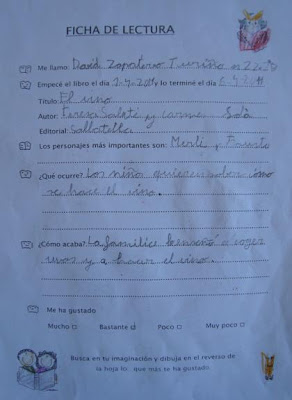 FICHA DE LECTURA
Me llamo: David Zapatero
Empecé el libro el día 1-4-2011 y lo terminé el día 6-4-2011
Título: El vino
Autor: Teresa Sabaté y Carme Solé
Editorial: Saltatella
Los personajes más importantes son: Merli y Fausto
¿Qué ocurre? Los niños quieren saber cómo
se hace el vino.
¿Cómo acaba? La familia enseñó a coger
uvas y a hacer el vino.
Me ha gustado
Mucho Bastante Poco Muy poco
Busca en tu imaginación y dibuja en el reverso de
la hoja lo que más te ha gustado.